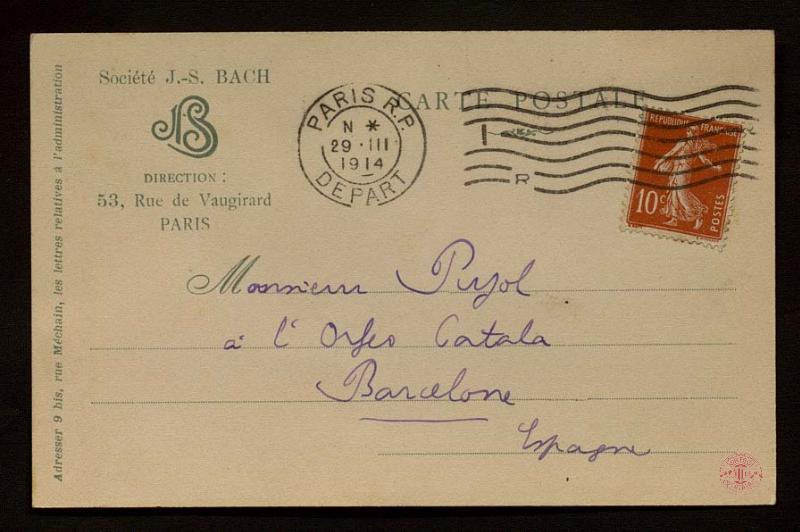 Société J.-S. BACH
JSB
DIRECTION :
53, Rue de Vaugirard
PARIS
Adresser 9 bis, rue Méchain, les lettres relatives à l'administration
CARTE POSTALE
PARIS R.P.
N *
29 · III
1914
DEPART
R
REPUBLIQUE FRANÇAISE
10c
POSTES
Monsieur Pujol
à l'Orfeo Catala
Barcelone
Espagne